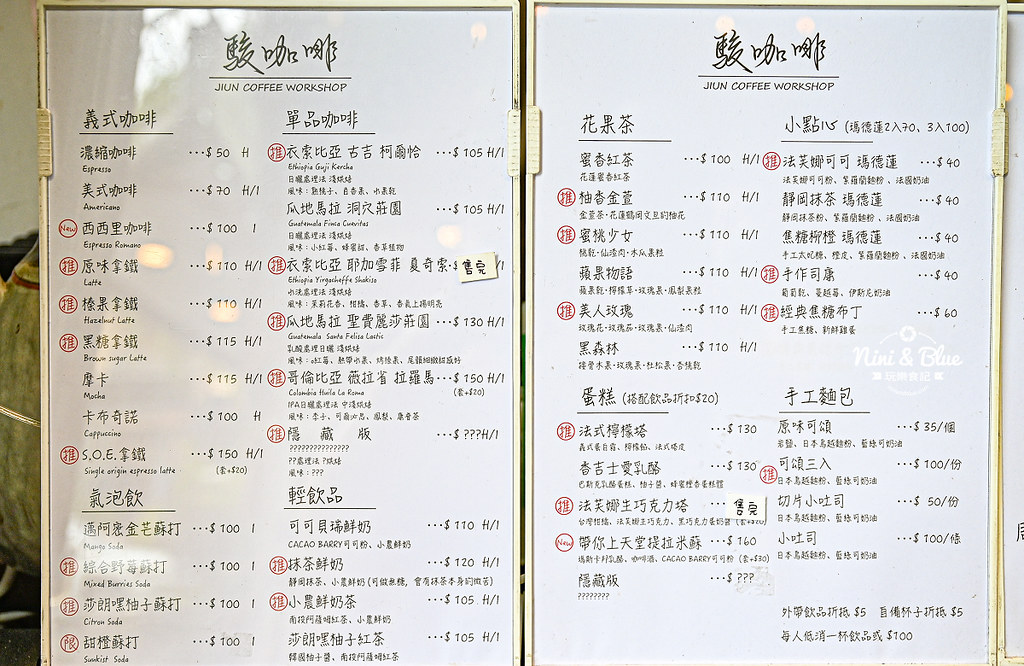 駿咖啡
JIUN COFFEE WORKSHOP
義式咖啡
濃縮咖啡 ...$ 50 H
Espresso
美式咖啡 ...$ 70 H/I
Americano
New 西西里咖啡 ...$ 100 I
Espresso Romano
推 原味拿鐵 ...$ 110 H/I
Latte
推 榛果拿鐵 ...$ 110 H/I
Hazelnut Latte
推 黑糖拿鐵 ...$ 115 H/I
Brown sugar Latte
摩卡 ...$ 115 H/I
Mocha
卡布奇諾 ...$ 100 H
Cappuccino
推 S.O.E.拿鐵 ...$ 150 H/I
Single origin espresso latte (套+$20)
氣泡飲
邁阿密金芒蘇打 ...$ 100 I
Mango Soda
推 綜合野莓蘇打 ...$ 100 I
Mixed Burries Soda
推 莎朗嘿柚子蘇打 ...$ 100 I
Citron Soda
限 甜橙蘇打 ...$ 100 I
Sunkist Soda
單品咖啡
推 衣索比亞 古吉 柯爾恰 ...$ 105 H/I
Ethiopia Guji Kercha
日曬處理法 淺烘焙
風味：熟桃子、百香果、水果乾
瓜地馬拉 洞穴莊園 ...$ 105 H/I
Guatemala Finca Cuevitas
日曬處理法 淺烘焙
風味：小紅莓、蜂蜜甜、香草植物
推 衣索比亞 耶加雪菲 夏奇索 售完
Ethiopia Yirgacheffe Shakiso
水洗處理法 淺烘焙
風味：茉莉花香、柑橘、香草、香氣上揚明亮
推 瓜地馬拉 聖費麗莎莊園 ...$ 130 H/I
Guatemala Santa Felisa Lactic
乳酸處理日曬 淺烘焙
風味：o紅莓、熱帶水果、烤堅果、尾韻細緻甜感好
推 哥倫比亞 薇拉省 拉羅馬 ...$ 150 H/I
Colombia Huila La Roma (套+$20)
IPA日曬處理法 中淺烘焙
風味：李子、可爾必思、鳳梨、康普茶
推 隱 藏 版 ...$ ???H/I
???????????????
??處理法 ?烘焙
風味：???
輕飲品
可可貝瑞鮮奶 ...$ 110 H/I
CACAO BARRY可可粉、小農鮮奶
推 抹茶鮮奶 ...$ 120 H/I
靜岡抹茶、小農鮮奶 (可做無糖, 會有抹茶本身的微苦)
推 小農鮮奶茶 ...$ 105 H/I
南投阿薩姆紅茶、小農鮮奶
莎朗嘿柚子紅茶 ...$ 105 H/I
韓國柚子醬、南投阿薩姆紅茶
駿咖啡
JIUN COFFEE WORKSHOP
花果茶
蜜香紅茶 ...$ 100 H/I
花蓮蜜香紅茶
推 柚香金萱 ...$ 110 H/I
金萱茶·花蓮鶴岡文旦的柚花
推 蜜桃少女 ...$ 110 H/I
桃乾·仙渣肉·木瓜果粒
蘋果物語 ...$ 110 H/I
蘋果乾·檸檬草·玫瑰果·鳳梨果粒
推 美人玫瑰 ...$ 110 H/I
玫瑰花·玫瑰茄·玫瑰果·仙渣肉
黑森林 ...$ 110 H/I
接骨木果·玫瑰果·杜松果·杏桃乾
蛋糕 (搭配飲品折扣$20)
推 法式檸檬塔 ...$ 130
義式蛋白霜、檸檬餡、法式塔皮
香吉士愛乳酪 ...$ 130
巴斯克乳酪蛋糕、柚子醬、蜂蜜橙香蛋糕體
推 法芙娜生巧克力塔 ... 售完
台灣柑橘、法芙娜生巧克力、黑巧克力蛋奶醬 (套+$20)
New 帶你上天堂提拉米蘇 ...$ 160
瑪斯卡邦乳酪、咖啡酒、CACAO BARRY可可粉 (套+$30)
隱藏版 ...$ ???
????????
小點心 (瑪德蓮2入70、3入100)
推 法芙娜可可 瑪德蓮 ...$ 40
法芙娜可可粉、紫羅蘭麵粉 、法國奶油
靜岡抹茶 瑪德蓮 ...$ 40
靜岡抹茶粉、紫羅蘭麵粉 、法國奶油
焦糖柳橙 瑪德蓮 ...$ 40
手工太妃糖、橙皮、紫羅蘭麵粉、法國奶油
推 手作司康 ...$ 40
葡萄乾、蔓越莓、伊斯尼奶油
推 經典焦糖布丁 ...$ 60
手工焦糖、新鮮雞蛋
手工麵包
原味可頌 ...$ 35/個
岩鹽、日本鳥越麵粉、藍絲可奶油
推 可頌三入 ...$ 100/份
日本鳥越麵粉、藍絲可奶油
切片小吐司 ...$ 50/份
日本鳥越麵粉、藍絲可奶油
小吐司 ...$ 100/條
日本鳥越麵粉、藍絲可奶油
外帶飲品折抵 $5 自備杯子折抵 $5
每人低消一杯飲品或 $100
Nini & Blue
玩樂食記